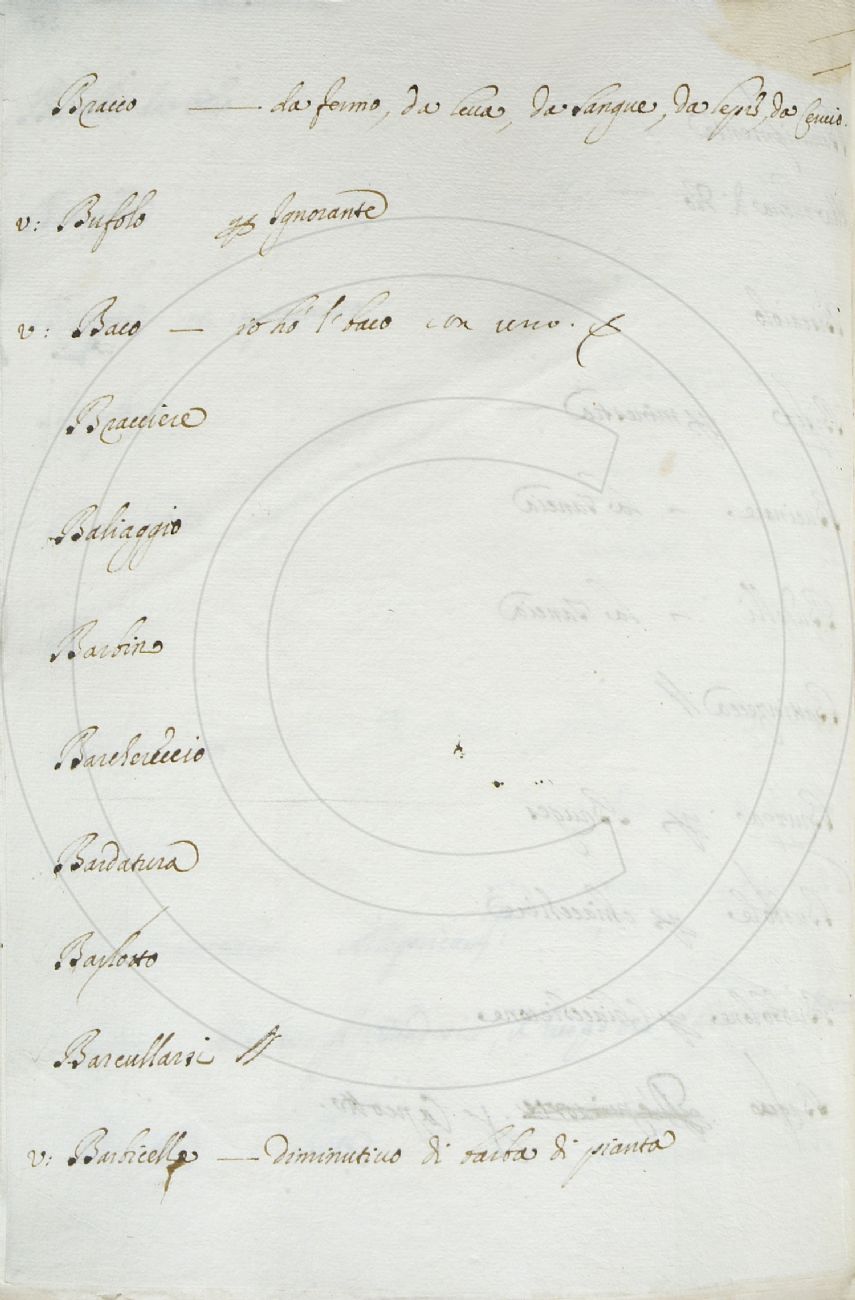 Bracco —— da fermo, da leva, da sangue, da lepri, da
v: Bufolo p Ignorante
v: Baco — io hò l' baco con
Bracciere
Baliaggio
Barbino
Barchereccio
Bardatura
Barlotto
Barcullarsi //
v: Barbicelle —— Diminutivo di barba di pianta